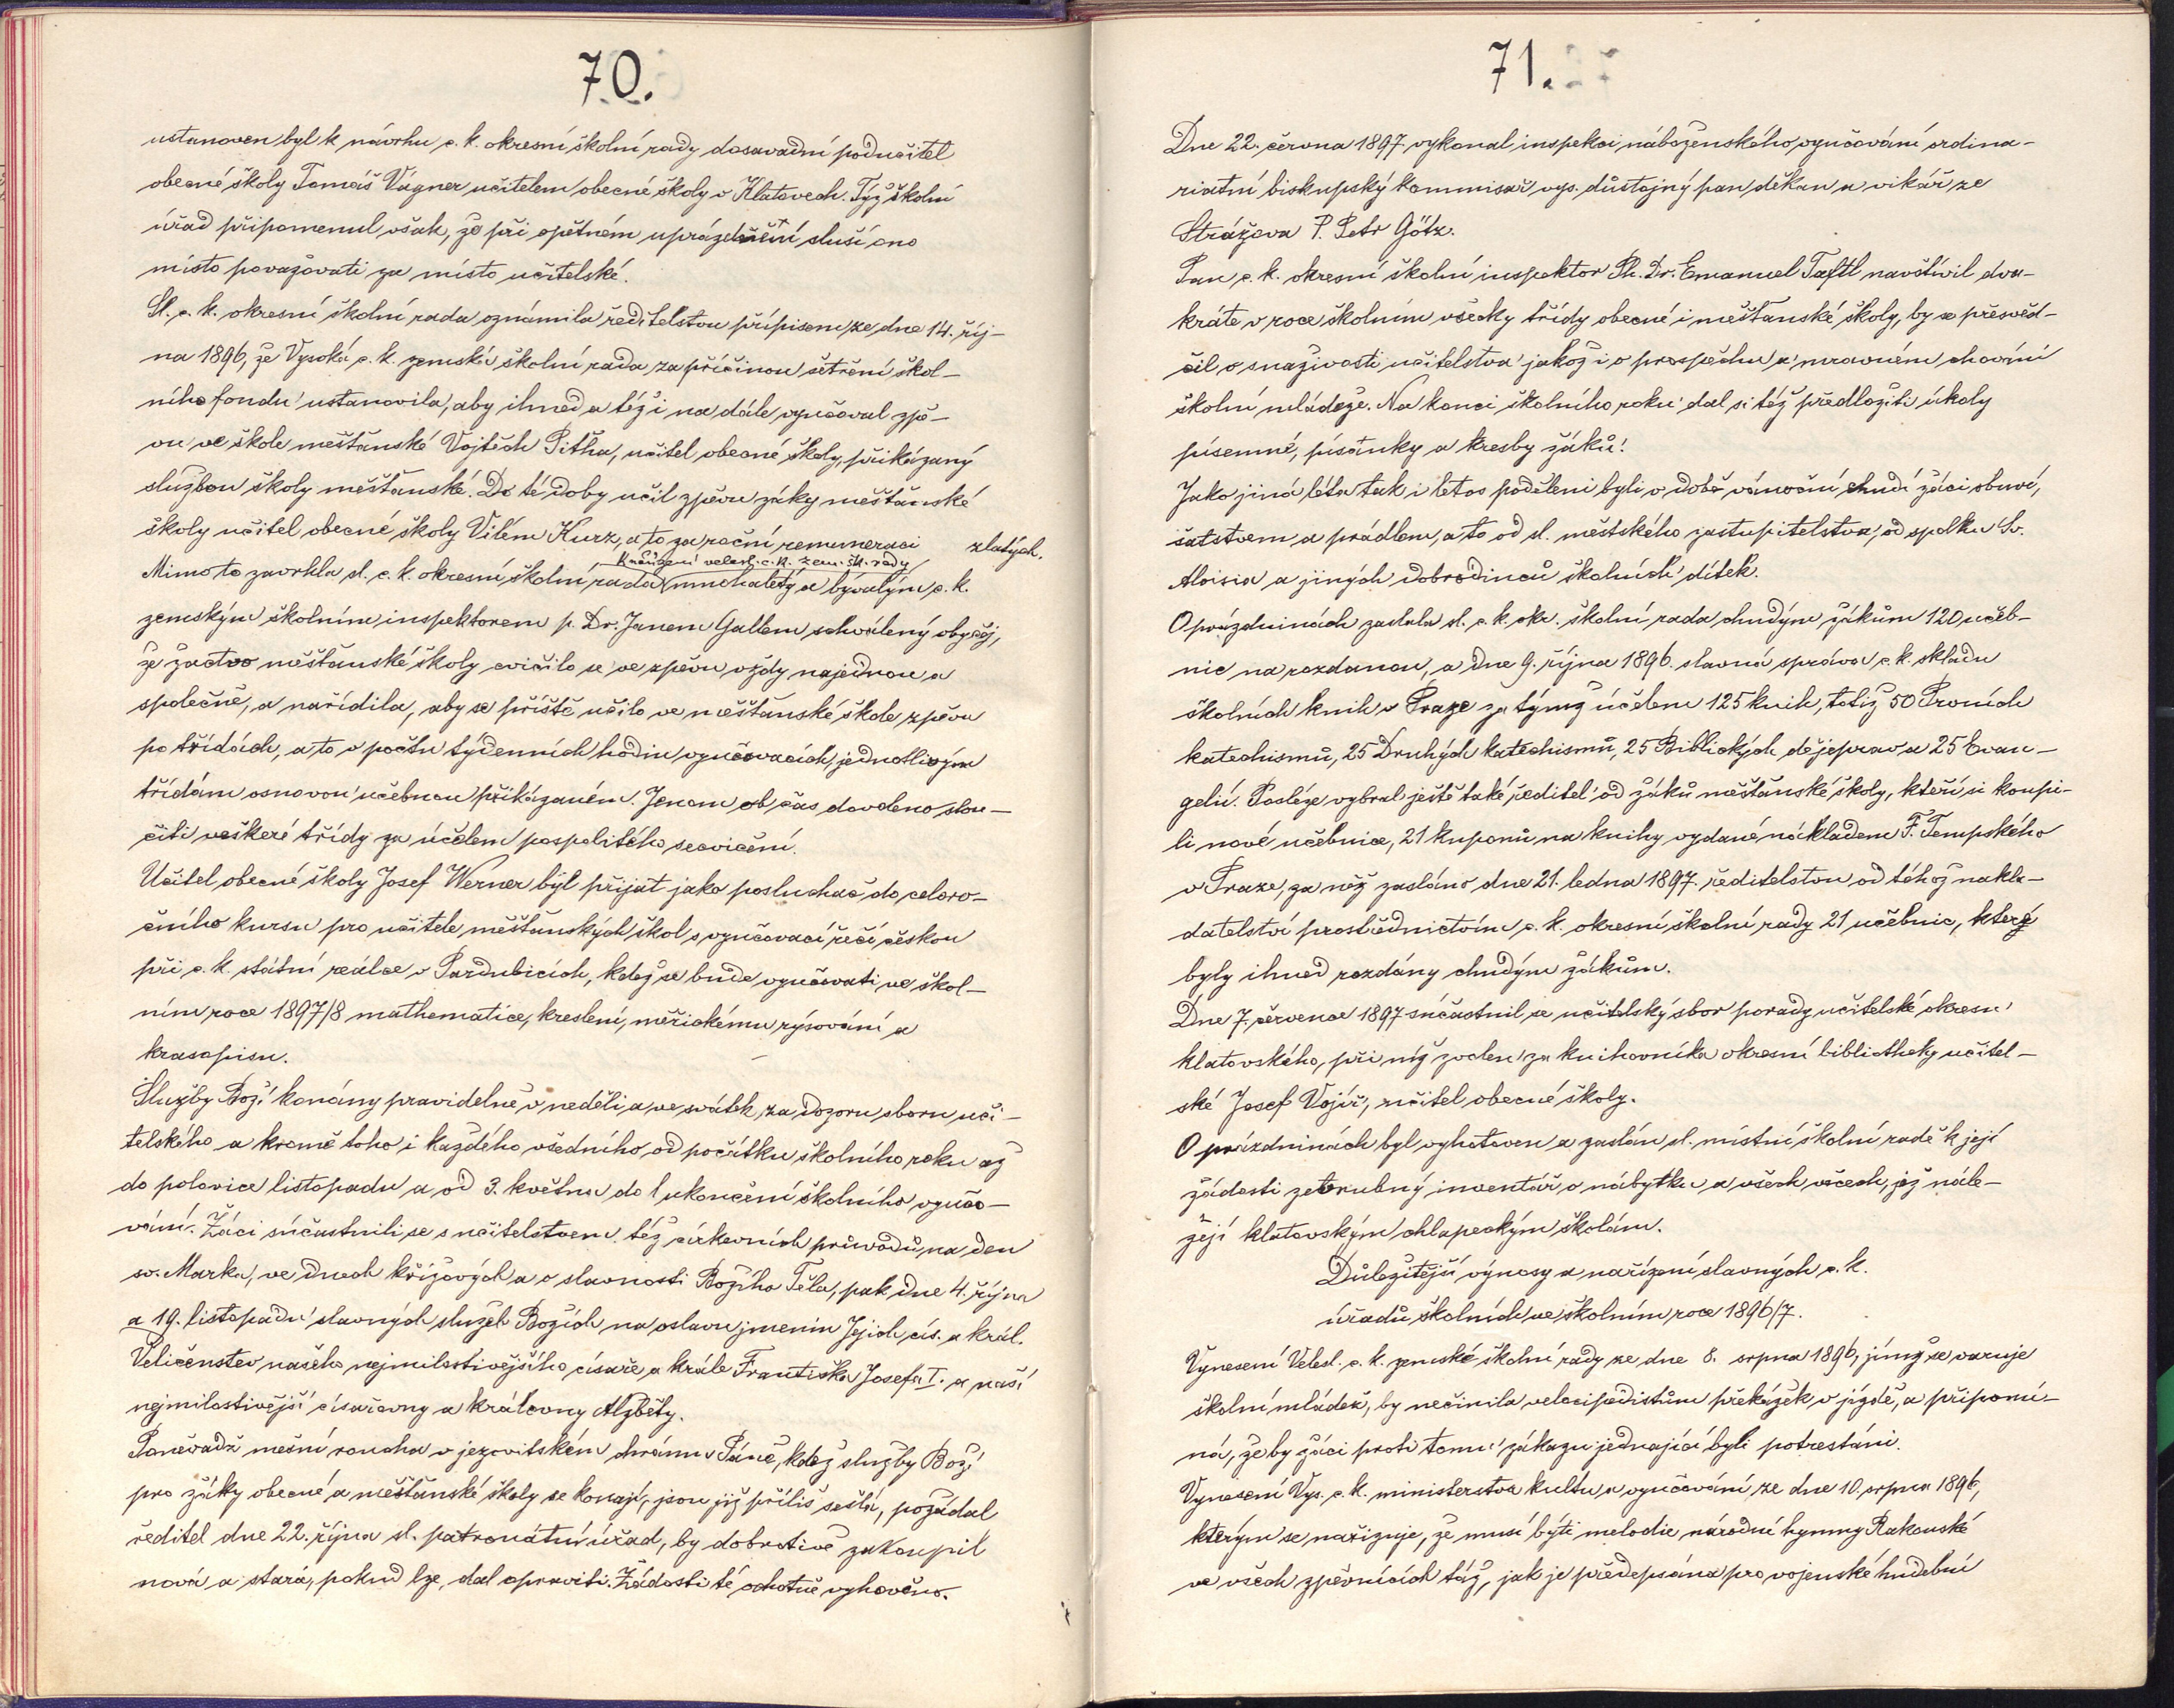 70.
ustanoven byl k návrhu c. k. okresní školní rady dosavadní podučitel
obecné školy Tomáš Vágner učitelem obecné školy v Klatovech. Týž školní
úřad připomenul však, že při opětném uprázdnění sluší ono
místo považovati za místo učitelské.
Sl. c. k. okresní školní rada oznámila ředitelstvu přípisem ze dne 14. říj-
na 1896, že Vysoká c. k. zemská školní rada za příčinou šetření škol-
ního fondu ustanovila, aby ihned a též i na dále vyučoval zpě-
vu ve škole měšťanské Vojtěch Pitha, učitel obecné školy, přikázaný
službou školy měšťanské. Do té doby učil zpěvu žáky měšťanské
školy učitel obecné školy Vilém Kurz, a to za roční remuneraci zlatých.
K nařízení velesl. c. k. zem. šk. rady
Mimo to zavrhla sl. c. k. okresní školní rada mnoholetý a bývalým c. k.
zemským školním inspektorem p. Dr. Janem Gallem schválený obyčej,
že žactvo měšťanské školy cvičilo se ve zpěvu vždy najednou a
společně, a nařídila, aby se příště učilo ve měšťanské škole zpěvu
po třídách, a to v počtu týdenních hodin vyučovacích, jednotlivým
třídám osnovou učebnou přikázaném. Jenom ob čas dovoleno slou-
čiti veškeré třídy za účelem pospolitého secvičení.
Učitel obecné školy Josef Werner byl přijat jako posluchač do celoro-
čního kursu pro učitele měšťanských škol s vyučovací řečí českou
při c. k. státní reálce v Pardubicích, kdež se bude vyučovati ve škol-
ním roce 1897/8 mathematice, kreslení, měřickému rýsování a
krasopisu.
Služby Boží konány pravidelně v neděli a ve svátek, za dozoru sboru uči-
telského a kromě toho i každého všedního, od počátku školního roku až
do polovice listopadu a od 3. května do ukončení školního vyučo-
vání. Žáci súčastnili se s učitelstvem též církevních průvodů, na den
sv. Marka, ve dnech křížových a o slavnosti Božího Těla, pak dne 4. října
a 19. listopadu slavných služeb Božích na oslavu jmenin Jejich cís. a král.
Veličenstev našeho nejmilostivějšího císaře a krále Františka Josefa I. a naší
nejmilostivější císařovny a královny Alžběty.
Poněvadž mešní roucha v jezovitském chrámu Páně, kdež služby Boží
pro žáky obecné a měšťanské školy se konají, jsou již příliš sešlá, požádal
ředitel dne 22. října sl. patronátní úřad, by dobrotivě zakoupil
nová a stará, pokud lze, dal opraviti. Žádosti té ochotně vyhověno.
71.
Dne 22. června 1897 vykonal inspekci náboženského vyučování ordina-
riatní biskupský kommisař vys. důstojný pan děkan a vikář ze
Strážova P. Petr Götz.
Pan c. k. okresní školní inspektor Ph. Dr. Emanuel Taftl navštívil dva-
kráte v roce školním všecky třídy obecné i měšťanské školy, by se přesvěd-
čil o snaživosti učitelstva jakož i o prospěchu a mravném chování
školní mládeže. Na konci školního roku dal si též předložiti úkoly
písemné, písanky a kresby žáků.
Jako jiná léta tak i letos poděleni byli v době vánoční chudí žáci obuví,
šatstvem a prádlem, a to od sl. městského zastupitelstva, od spolku Sv.
Aloisia a jiných dobrodinců školních dítek.
O prázdninách zaslala sl. c. k. okr. školní rada chudým žákům 120 učeb-
nic na rozdanou, a dne 9. října 1896. slavná správa c. k. skladu
školních knih v Praze za týmž účelem 125 knih, totiž 50 Prvních
katechismů, 25 Druhých katechismů, 25 Biblických dějeprav a 25 Evan-
gelií. Posléze vybral ještě také ředitel od žáků měšťanské školy, kteří si koupi-
li nové učebnice, 21 kuponů na knihy vydané nákladem F. Tempského
v Praze, za něž zasláno dne 21. ledna 1897. ředitelstvu od téhož nakla-
datelství prostřednictvím c. k. okresní školní rady 21 učebnic, které
byly ihned rozdány chudým žákům.
Dne 7. července 1897 súčastnil se učitelský sbor porady učitelské okresu
klatovského, při níž zvolen za knihovníka okresní bibliotheky učitel-
ské Josef Vojíř, učitel obecné školy.
O prázdninách byl vyhotoven a zaslán sl. místní školní radě k její
žádosti zevrubný inventář o nábytku a všech věcech, jež nále-
žejí klatovským chlapeckým školám.
Důležitější výnosy a nařízení slavných c. k.
úřadů školních ve školním roce 1896/7.
Vynesení Velesl. c. k. zemské školní rady ze dne 8. srpna 1896, jímž se varuje
školní mládež, by nečinila velocipedistům překážek v jízdě, a připomí-
ná, že by žáci proti tomu zákazu jednající byli potrestáni.
Vynesení Vys. c. k. ministerstva kultu a vyučování ze dne 10. srpna 1896,
kterým se nařizuje, že musí býti melodie národní hymny Rakouské
ve všech zpěvnících táž, jak je předepsána pro vojenské hudební